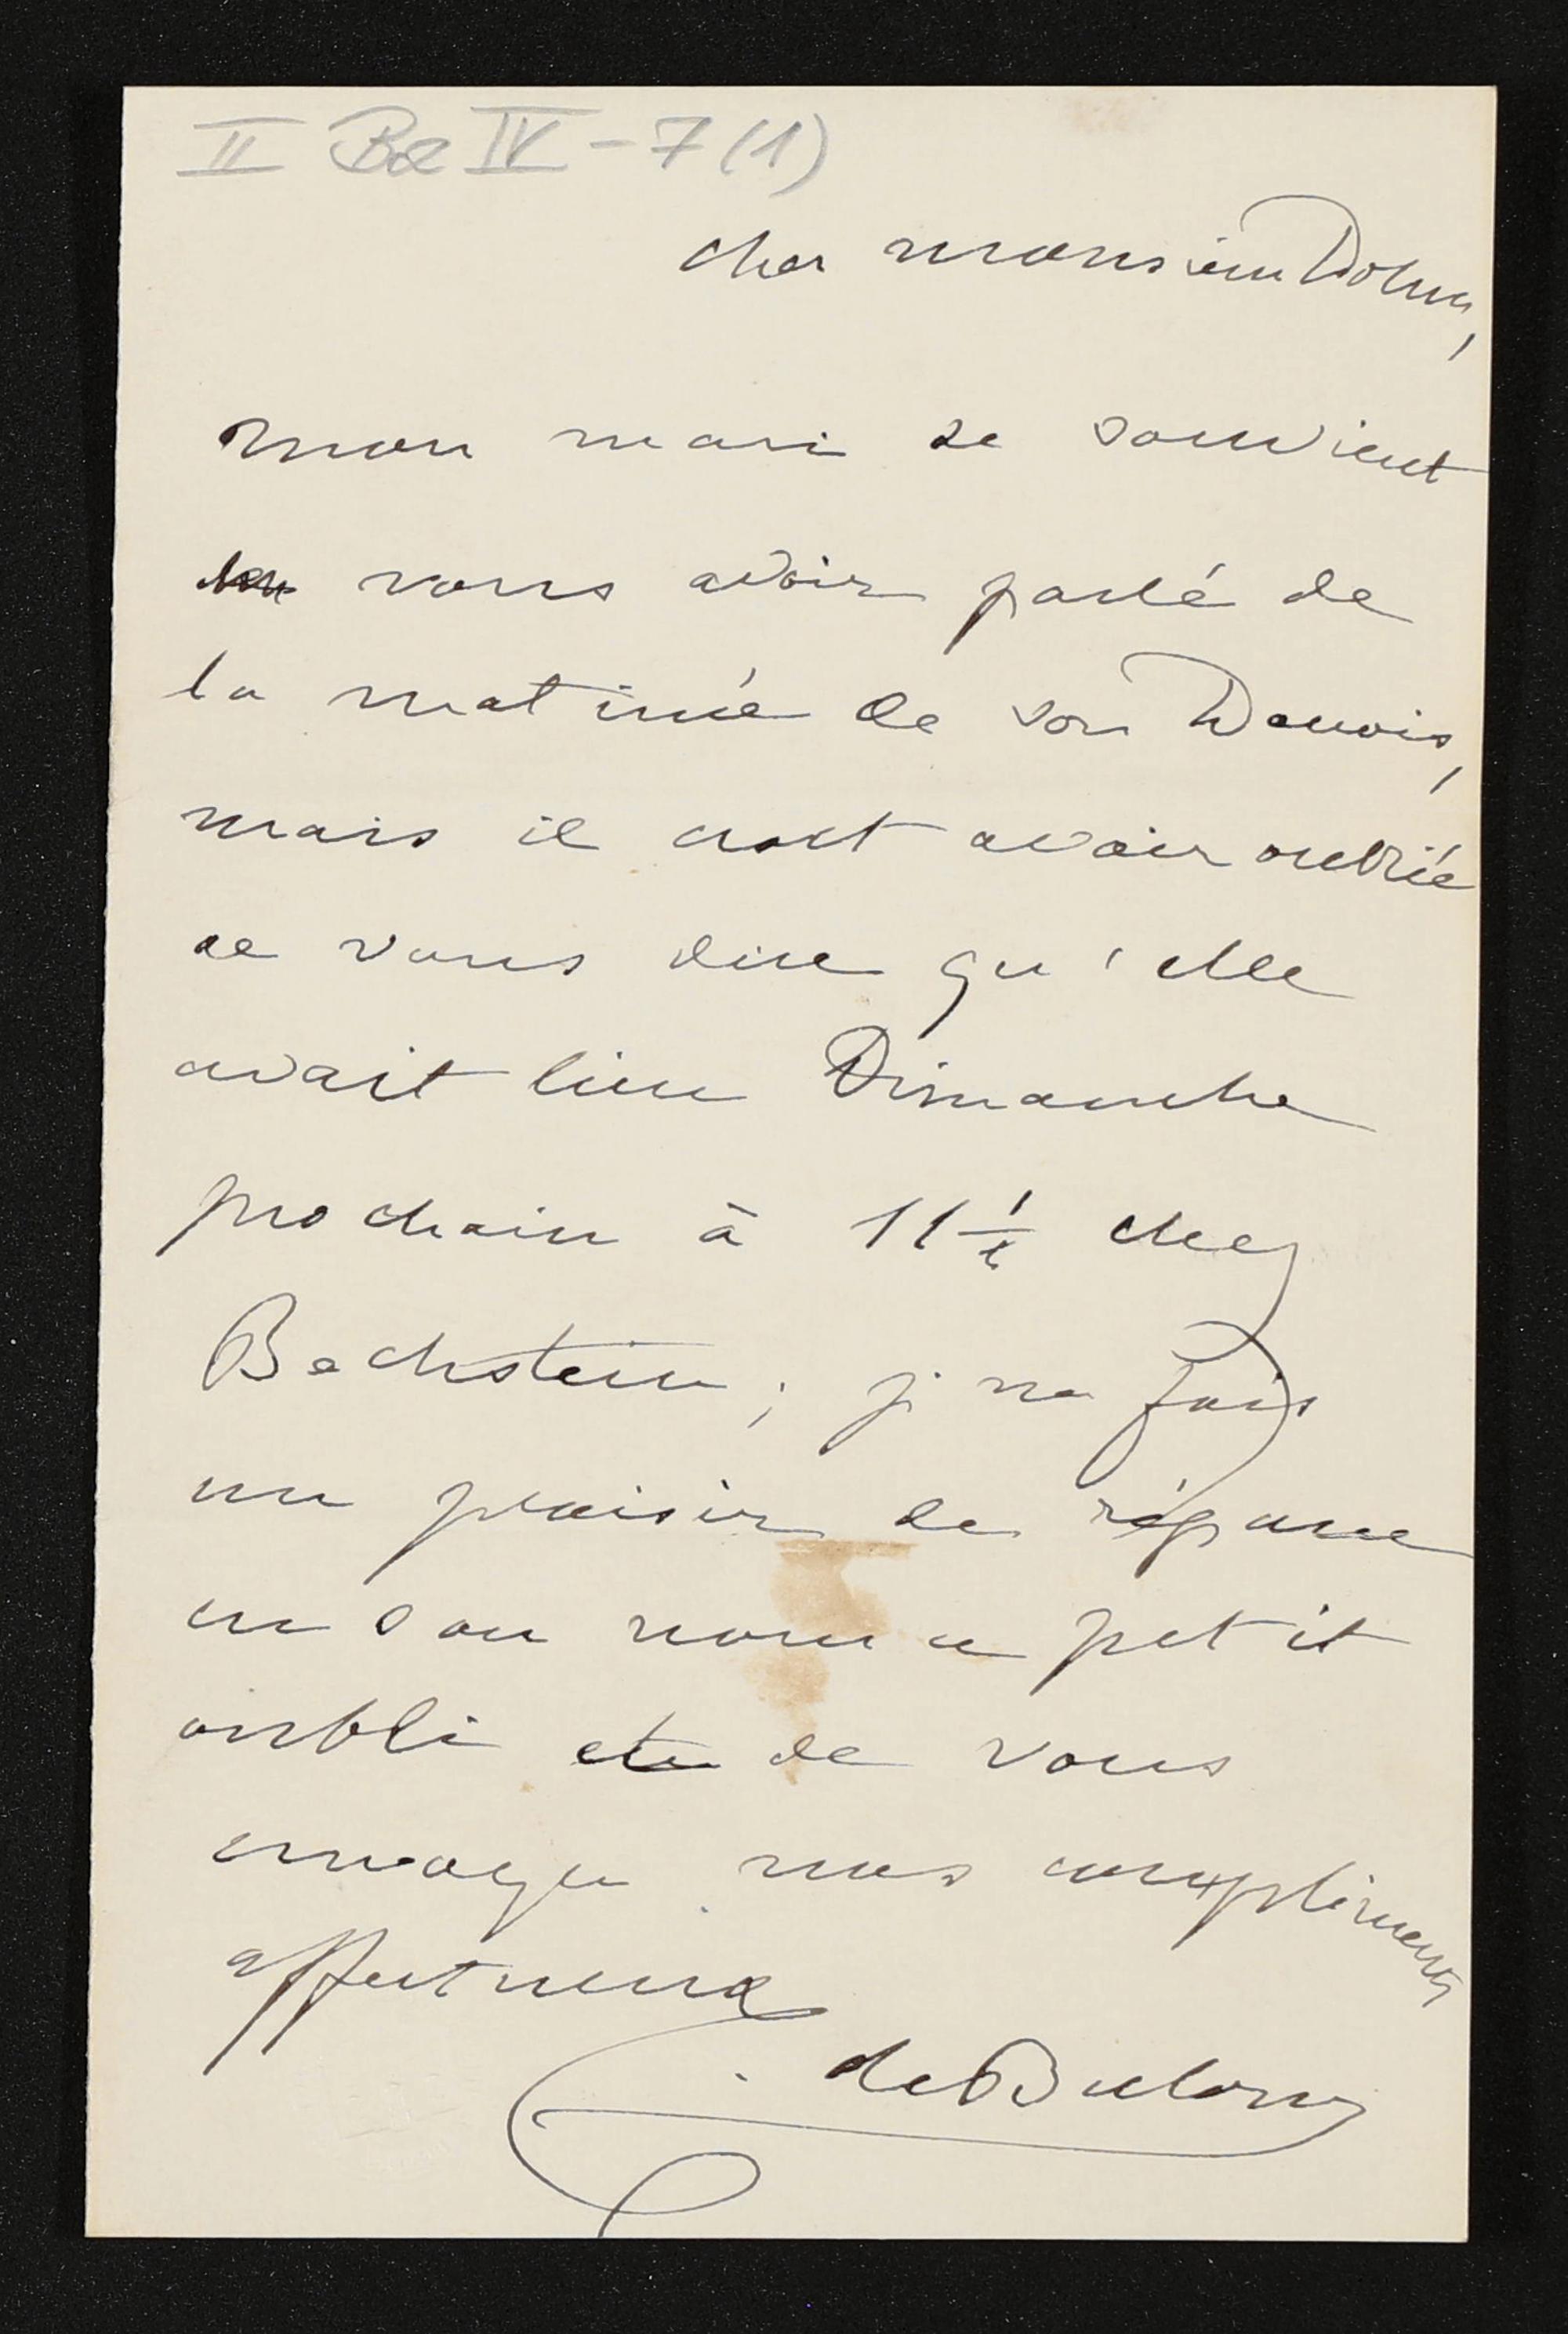 II Bæ IV - 7 (1)
cher monsieur Dohm,
mon mari se souvient
vous avoir parlé de
la matinée de son
mais il croit avoir oublié
de vous dire qu'elle
avait lieu Dimanche
prochain à 11 ½ chez
Bechstein; je me fais
un plaisir de réparer
en son nom ce petit
oubli et de vous
envoyer nos compliments
affectueux
de Bulow